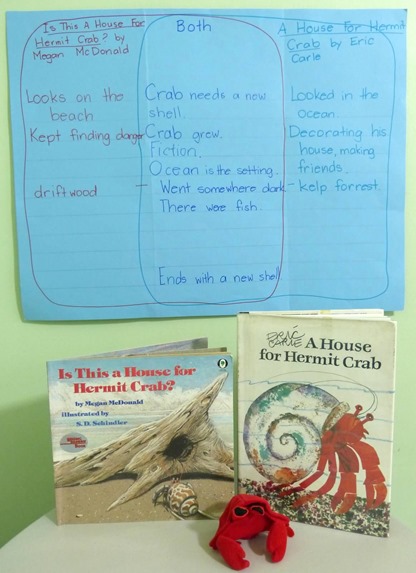 Is This A House For
Hermit Crab? by
Megan McDonald
Looks on the
beach
Kept finding danger
driftwood
Both
Crab needs a new
shell.
Crab grew.
Fiction.
Ocean is the setting.
- Went somewhere dark -
There were fish.
Ends with a new shell
A House for Hermit
Crab by Eric
Carle
Looked in the
ocean.
Decorating his
house, making
friends.
kelp forrest.
Is This a House for
Hermit Crab?
by Megan McDonald
illustrated by
S. D. Schindler
ERIC
CARLE
A House
for Hermit Crab